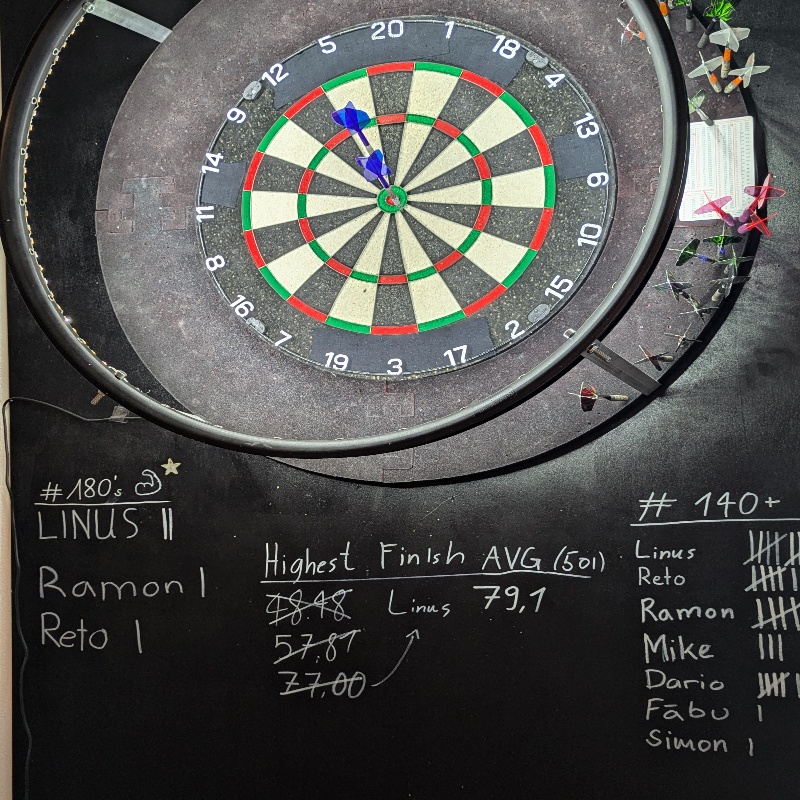 20
1
18
4
13
6
10
15
2
17
3
19
7
16
8
11
14
9
12
5
# 180's
LINUS ||
Ramon |
Reto |
Highest Finish AVG (501)
48.48 Linus 79,1
57,81
77,00
# 140+
Linus
Reto
Ramon
Mike |||
Dario
Fābu |
Simon |